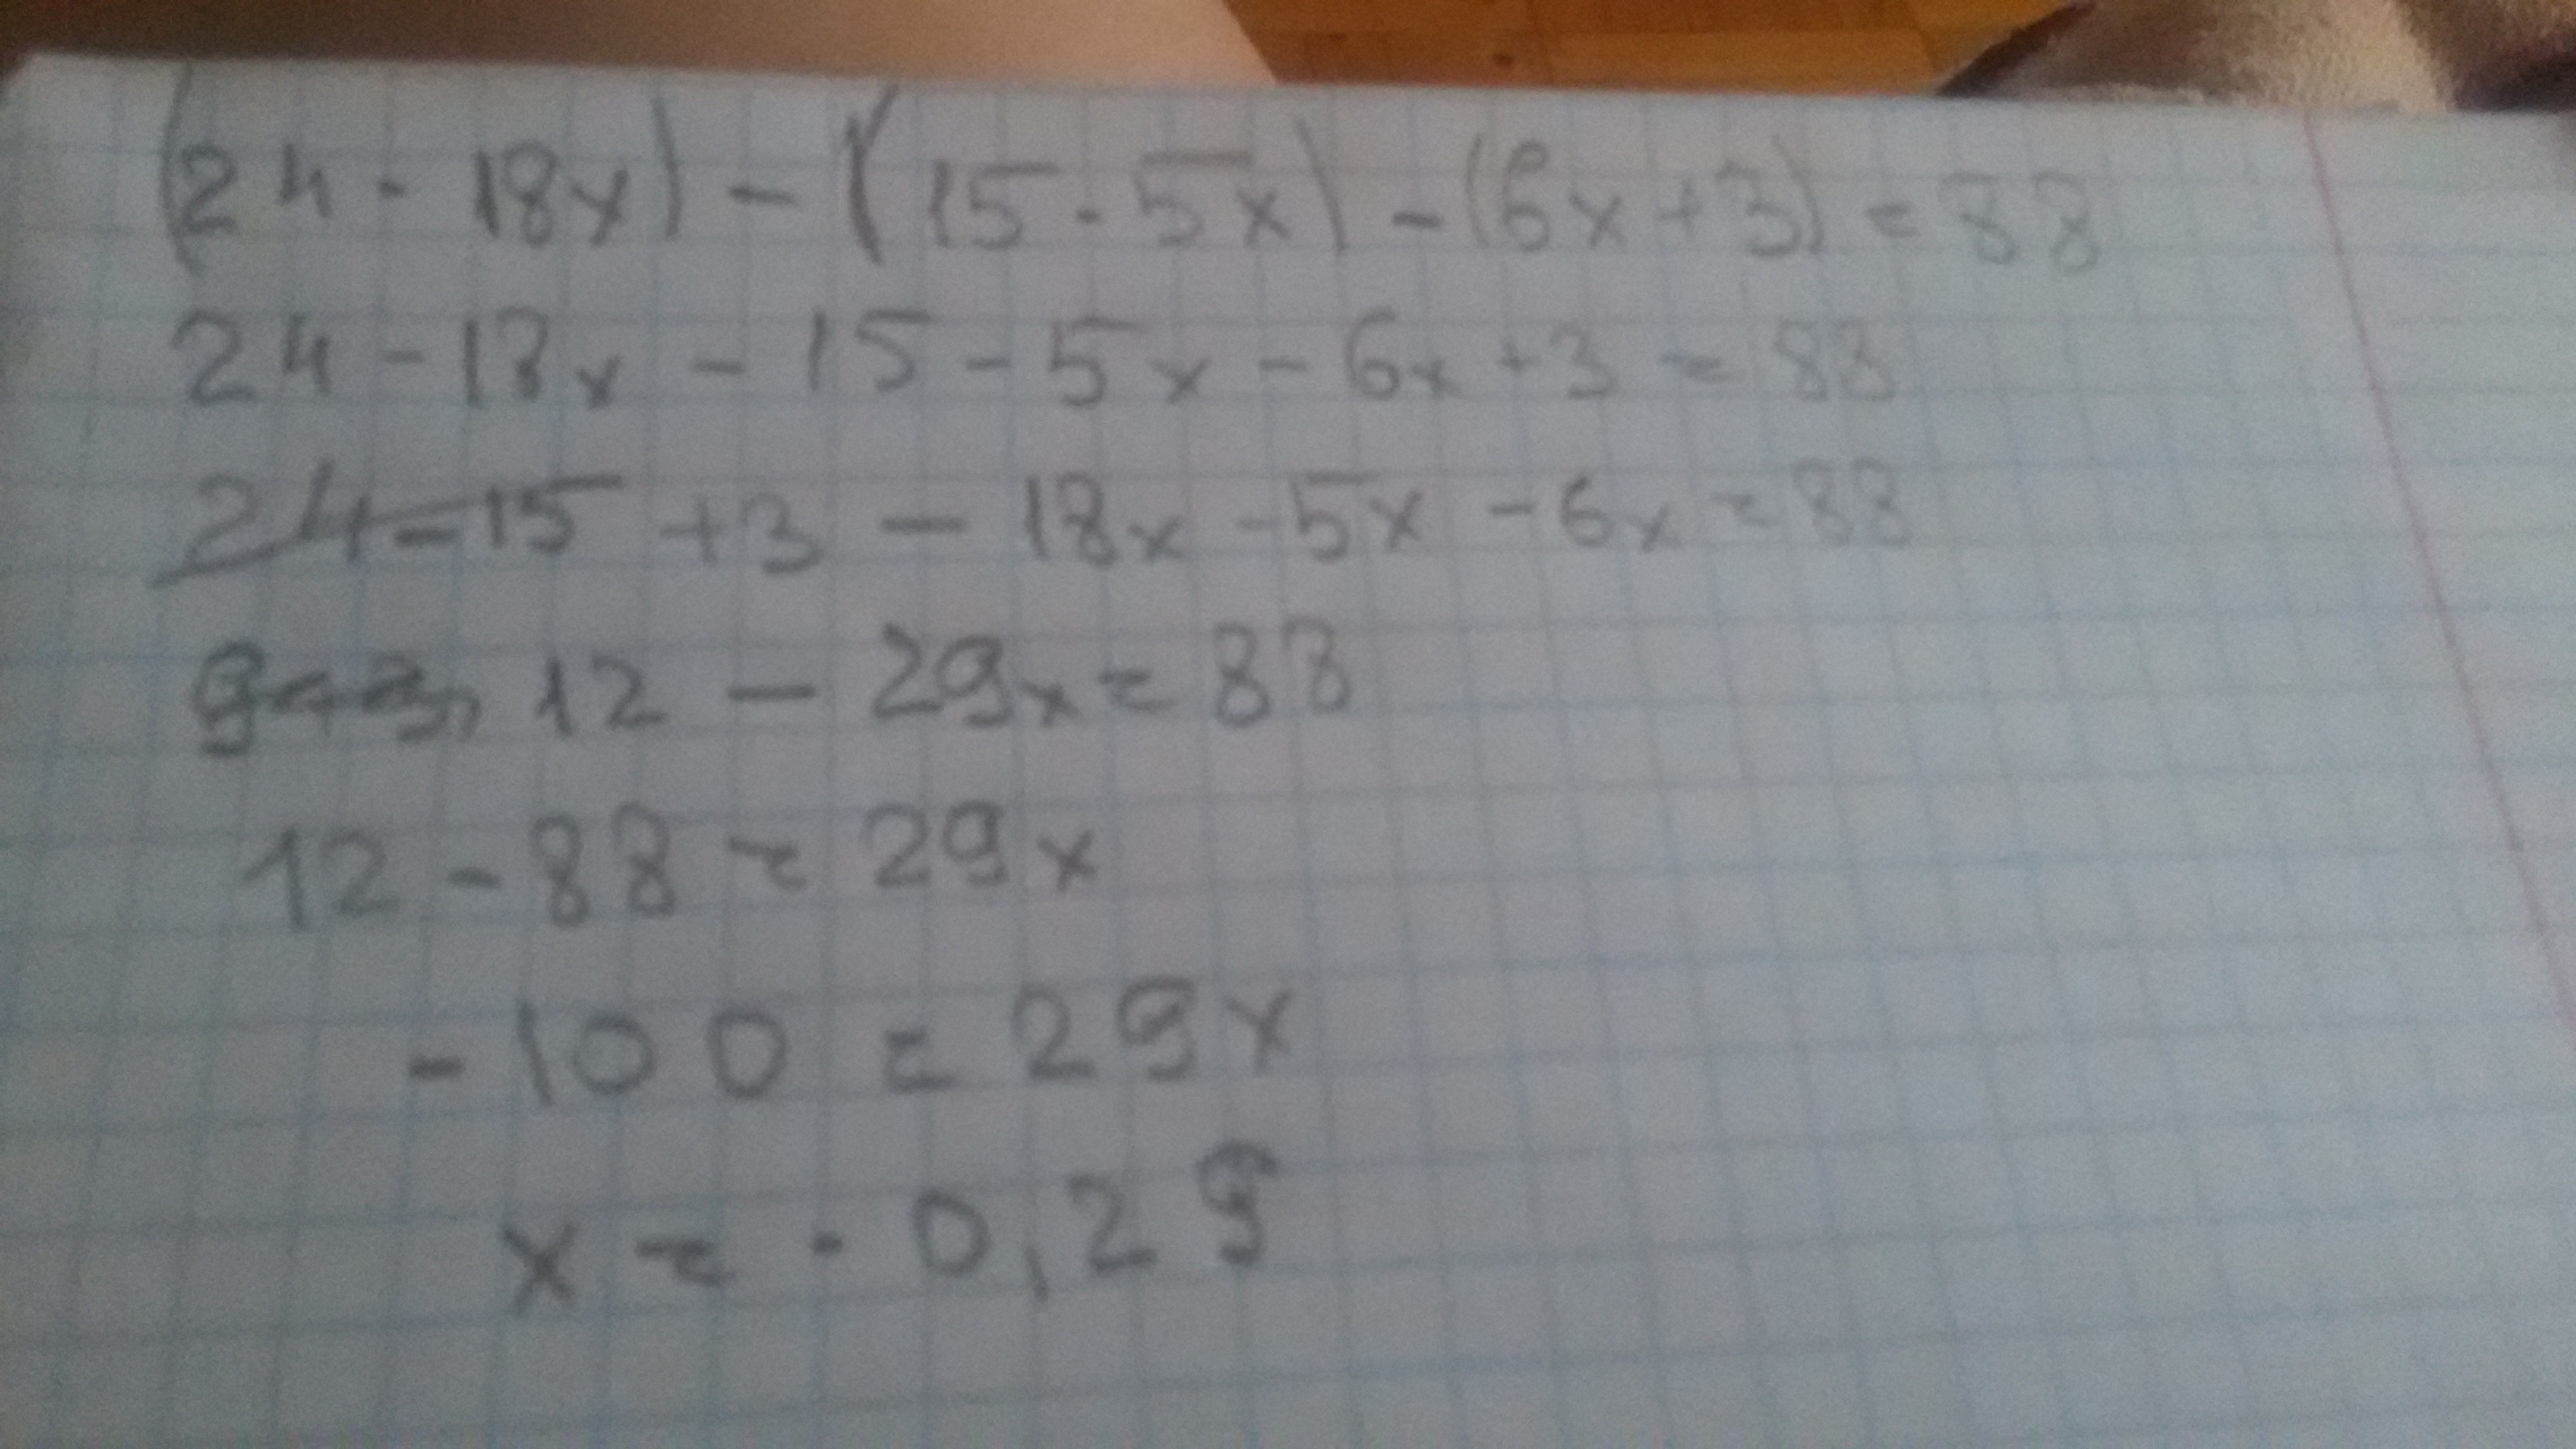 (24 - 18x) - (15 - 5x) - (6x + 3) = 88
24 - 18x - 15 - 5x - 6x + 3 = 88
24 - 15 + 3 - 18x - 5x - 6x = 88
9+3, 12 - 29x = 88
12 - 88 = 29x
-100 = 29x
x = - 0,29